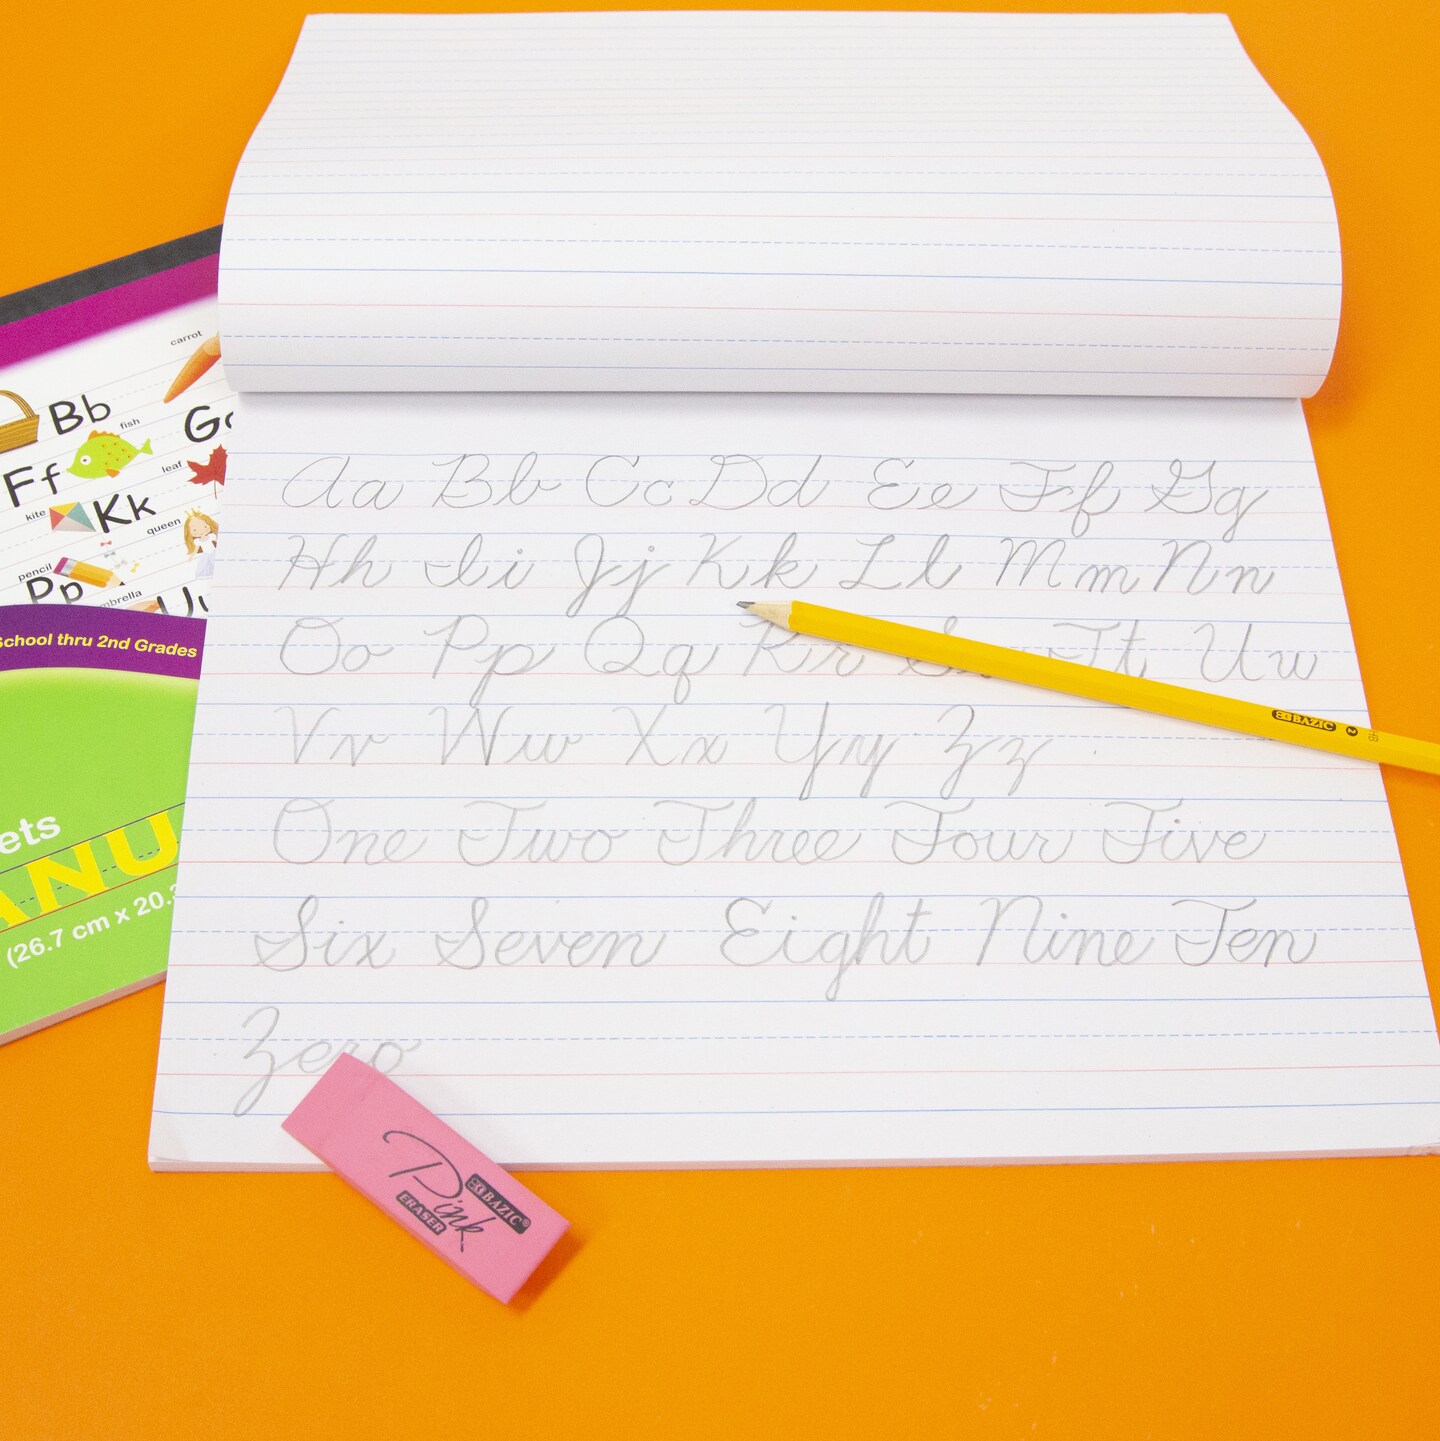 Aa Bb Cc Dd Ee Ff Gg
Hh Ii Jj Kk Ll Mm Nn
Oo Pp Qq Rr Ss Tt Uu
Vv Ww Xx Yy Zz
One Two Three Four Five
Six Seven Eight Nine Ten
Zero
BAZIC 2 HB
Pink
BAZIC®
ERASER
carrot
Bb
fish
Ff
leaf
kite
Kk
queen
pencil
Pp
School thru 2nd Grades
ets
ANU
(26.7 cm x 20.3